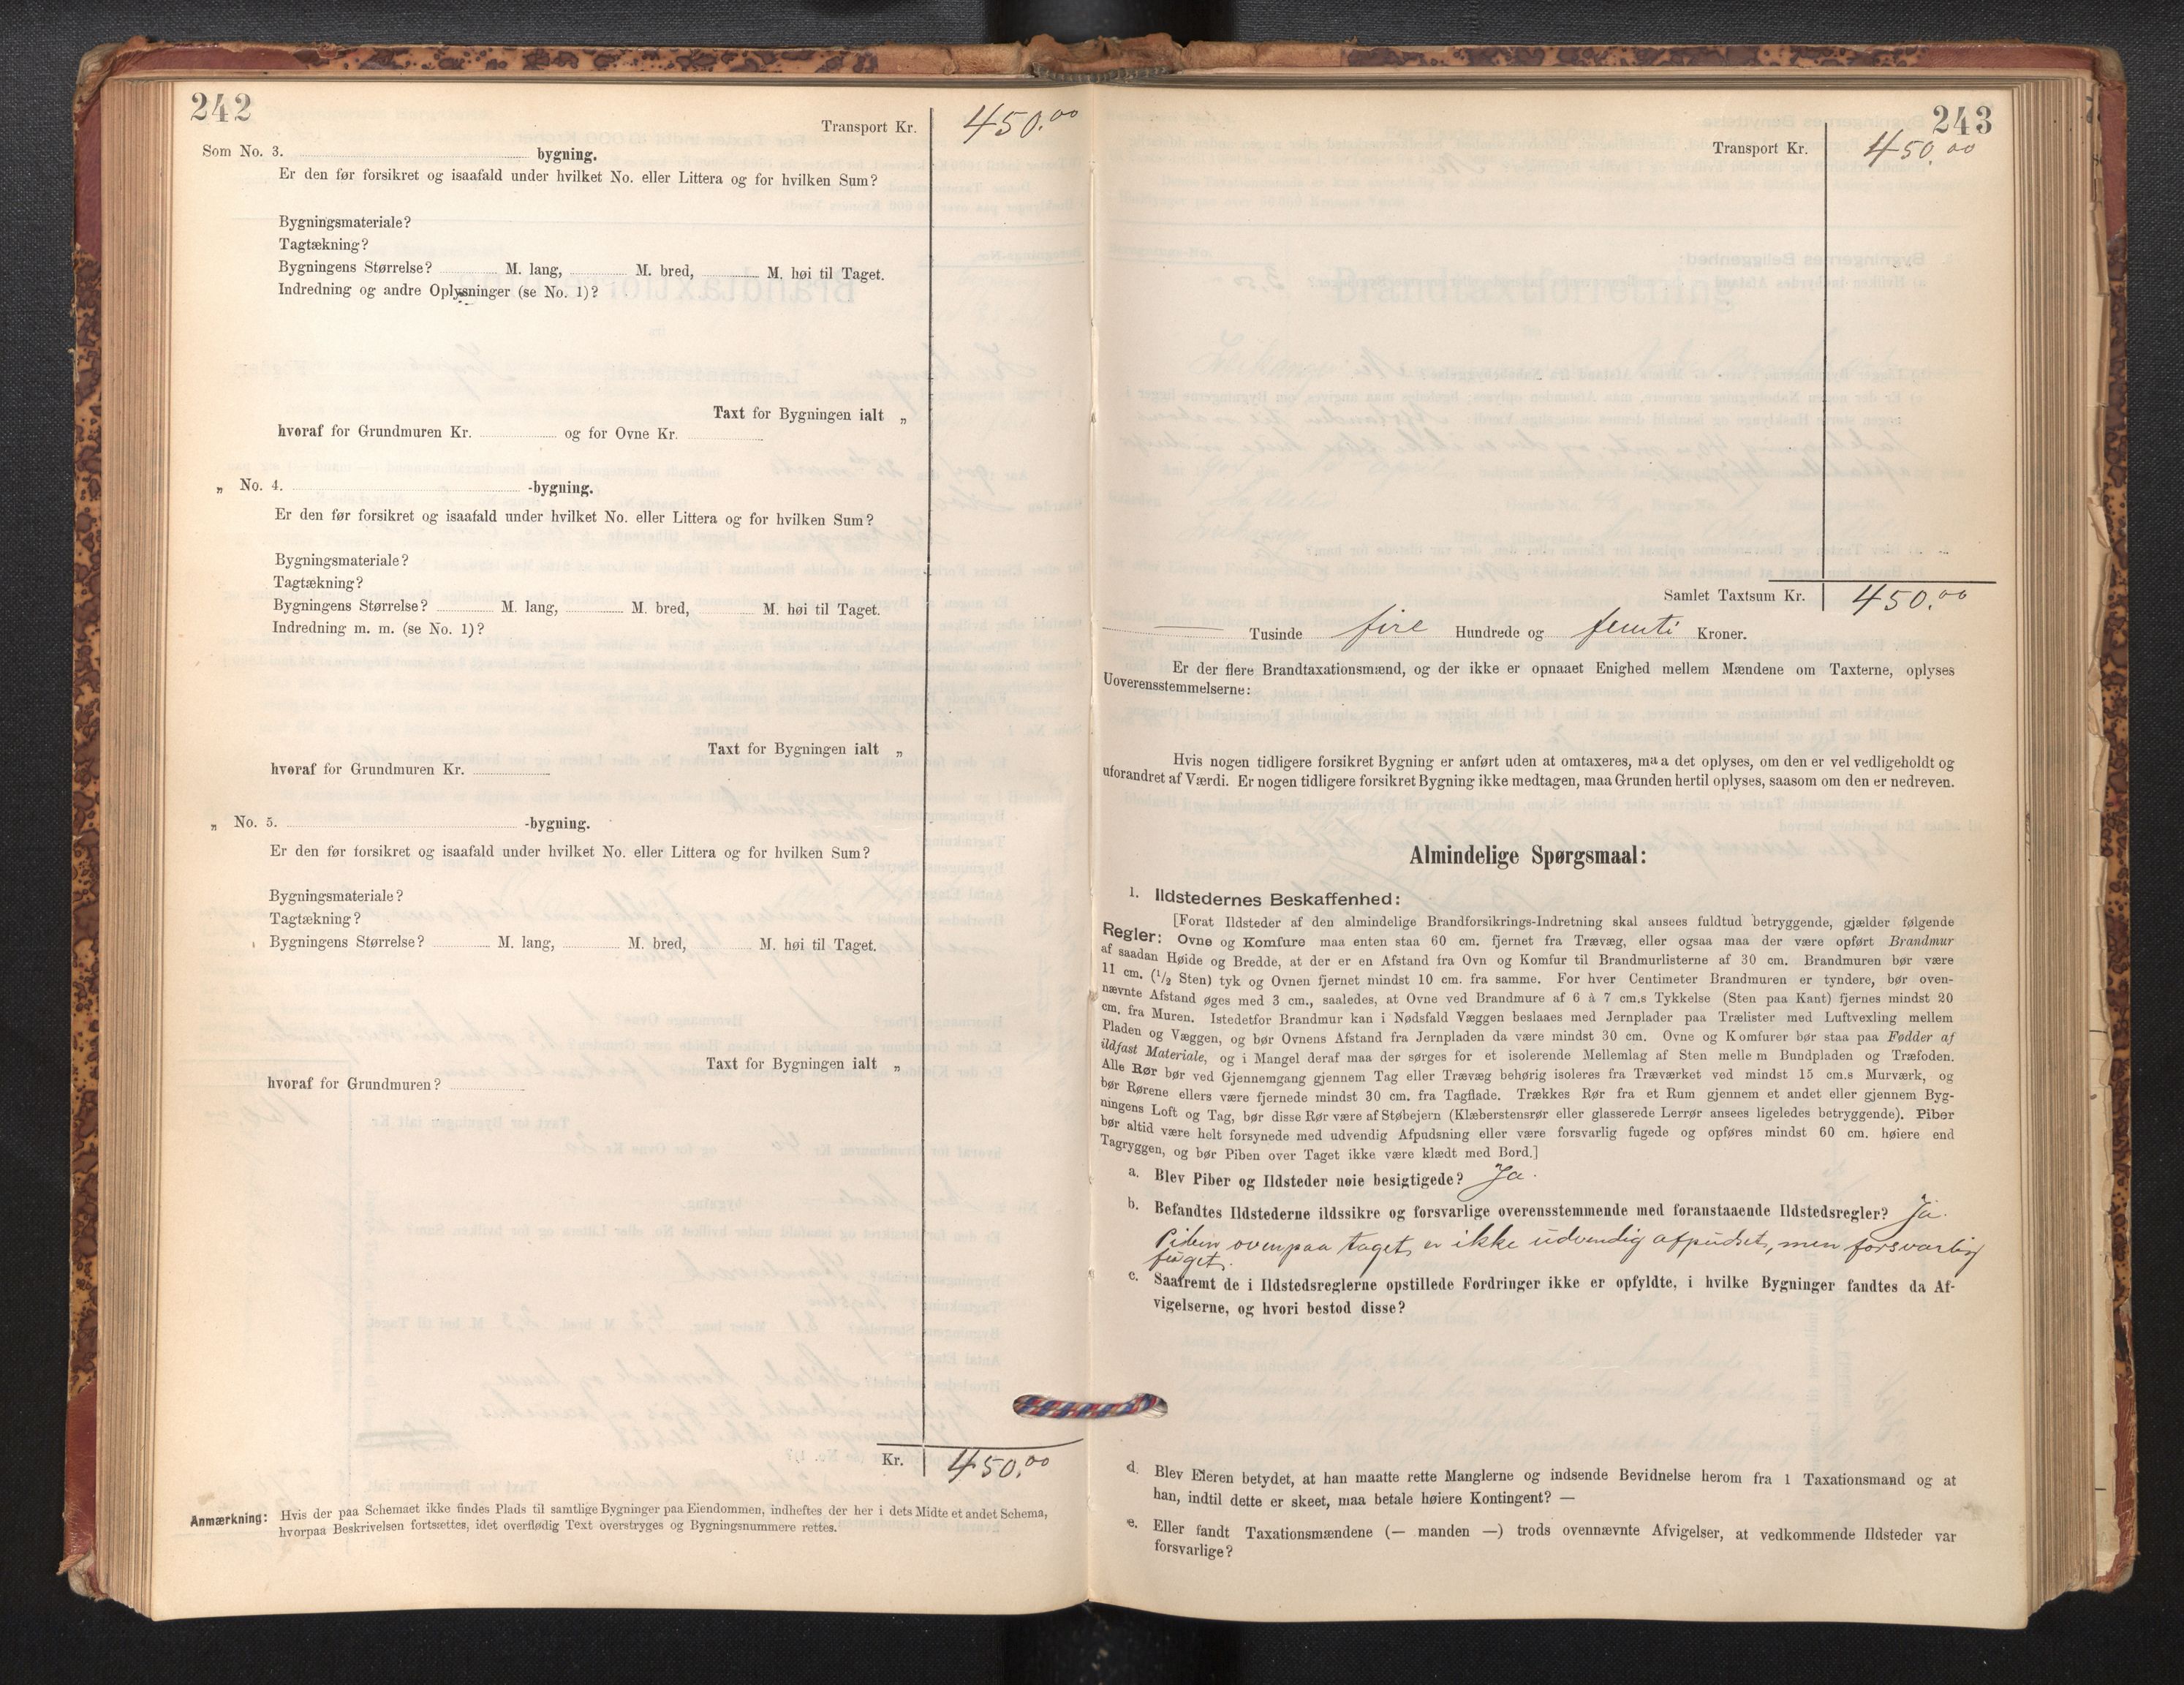 242
Transport Kr. 450.00
Som No. 3. bygning.
Er den før forsikret og isaafald under hvilket No. eller Littera og for hvilken Sum?
Bygningsmateriale?
Tagtækning?
Bygningens Størrelse? M. lang, M. bred, M. høi til Taget.
Indredning og andre Oplysninger (se No. 1)?
Taxt for Bygningen ialt „
hvoraf for Grundmuren Kr. og for Ovne Kr.
„ No. 4. -bygning.
Er den før forsikret og isaafald under hvilket No. eller Littera og for hvilken Sum?
Bygningsmateriale?
Tagtækning?
Bygningens Størrelse? M. lang, M. bred, M. høi til Taget.
Indredning m. m. (se No. 1)?
Taxt for Bygningen ialt „
hvoraf for Grundmuren Kr.
„ No. 5. -bygning.
Er den før forsikret og isaafald under hvilket No. eller Littera og for hvilken Sum?
Bygningsmateriale?
Tagtækning?
Bygningens Størrelse? M. lang, M. bred, M. høi til Taget.
Taxt for Bygningen ialt „
hvoraf for Grundmuren?
Kr. 450.00
Anmærkning: Hvis der paa Schemaet ikke findes Plads til samtlige Bygninger paa Eiendommen, indheftes der her i dets Midte et andet Schema,
hvorpaa Beskrivelsen fortsættes, idet overflødig Text overstryges og Bygningsnummere rettes.
243
Transport Kr. 450.00
Samlet Taxtsum Kr. 450.00
— Tusinde fire Hundrede og femti Kroner.
Er der flere Brandtaxationsmænd, og der ikke er opnaaet Enighed mellem Mændene om Taxterne, oplyses
Uoverensstemmelserne:
Hvis nogen tidligere forsikret Bygning er anført uden at omtaxeres, maa det oplyses, om den er vel vedligeholdt og
uforandret af Værdi. Er nogen tidligere forsikret Bygning ikke medtagen, maa Grunden hertil oplyses, saasom om den er nedreven.
Almindelige Spørgsmaal:
1. Ildstedernes Beskaffenhed:
[Forat Ildsteder af den almindelige Brandforsikrings-Indretning skal ansees fuldtud betryggende, gjælder følgende
Regler: Ovne og Komfure maa enten staa 60 cm. fjernet fra Trævæg, eller ogsaa maa der være opført Brandmur
af saadan Høide og Bredde, at der er en Afstand fra Ovn og Komfur til Brandmurlisterne af 30 cm. Brandmuren bør være
11 cm. (1/2 Sten) tyk og Ovnen fjernet mindst 10 cm. fra samme. For hver Centimeter Brandmuren er tyndere, bør oven-
nævnte Afstand øges med 3 cm., saaledes, at Ovne ved Brandmure af 6 à 7 cm.s Tykkelse (Sten paa Kant) fjernes mindst 20
cm. fra Muren. Istedetfor Brandmur kan i Nødsfald Væggen beslaaes med Jernplader paa Trælister med Luftvexling mellem
Pladen og Væggen, og bør Ovnens Afstand fra Jernpladen da være mindst 30 cm. Ovne og Komfurer bør staa paa Fødder af
ildfast Materiale, og i Mangel deraf maa der sørges for et isolerende Mellemlag af Sten mellem Bundpladen og Træfoden.
Alle Rør bør ved Gjennemgang gjennem Tag eller Trævæg behørig isoleres fra Træværket ved mindst 15 cm.s Murværk, og
bør Rørene ellers være fjernede mindst 30 cm. fra Tagflade. Trækkes Rør fra et Rum gjennem et andet eller gjennem Byg-
ningens Loft og Tag, bør disse Rør være af Støbejern (Klæberstensrør eller glasserede Lerrør ansees ligeledes betryggende). Piber
bør altid være helt forsynede med udvendig Afpudsning eller være forsvarlig fugede og opføres mindst 60 cm. høiere end
Tagryggen, og bør Piben over Taget ikke være klædt med Bord.]
a. Blev Piber og Ildsteder nøie besigtigede? Ja.
b. Befandtes Ildstederne ildssikre og forsvarlige overensstemmende med foranstaaende Ildstedsregler? Ja.
Piben ovenpaa taget er ikke udvendig afpudset, men forsvarlig
fuget.
c. Saafremt de i Ildstedsreglerne opstillede Fordringer ikke er opfyldte, i hvilke Bygninger fandtes da Af-
vigelserne, og hvori bestod disse?
d. Blev Eieren betydet, at han maatte rette Manglerne og indsende Bevidnelse herom fra 1 Taxationsmand og at
han, indtil dette er skeet, maa betale høiere Kontingent? —
e. Eller fandt Taxationsmændene (— manden —) trods ovennævnte Afvigelser, at vedkommende Ildsteder var
forsvarlige?